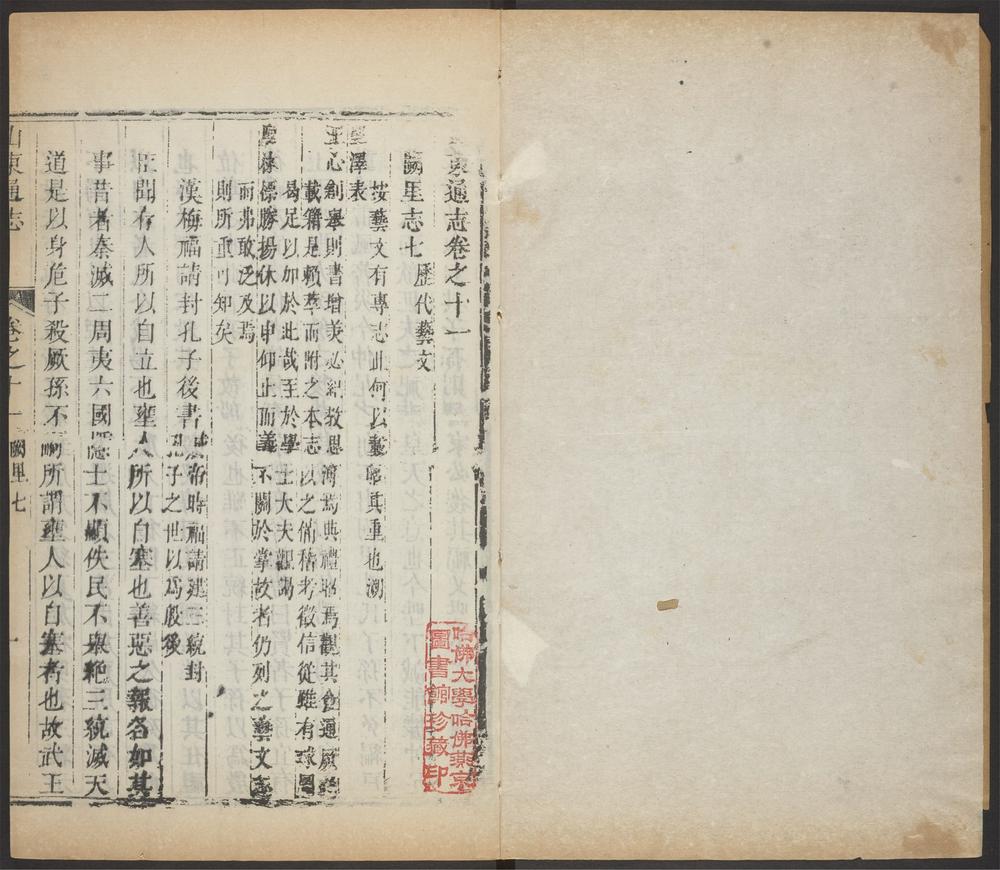 山東通志卷之十一
闕里志七 歷代藝文
按藝文有專志此何以載昭其重也溯
聖澤表
王心創舉則書增美必紀教思溥焉典禮昭焉觀其會通厥
載籍是賴萃而附之本志以之備稽考徵信從雖有球圖
曷足以加於此哉至於學士大夫觀謁
聖林摽勝揚休以申仰止而義不關於掌故者仍列之藝文志
而弗敢泛及焉
則所重可知矣
漢梅福請封孔子後書 成帝時福請建三統封
孔子之世以為殷後
臣聞存人所以自立也壅人所以自塞也善惡之報各如其
事昔者秦滅二周夷六國隱士不顯佚民不舉絶三統滅天
道是以身危子殺厥孫不嗣所謂壅人以自塞者也故武王
山東通志 卷之十一 闕里七 一
哈佛大學哈佛燕京
圖書館珍藏印